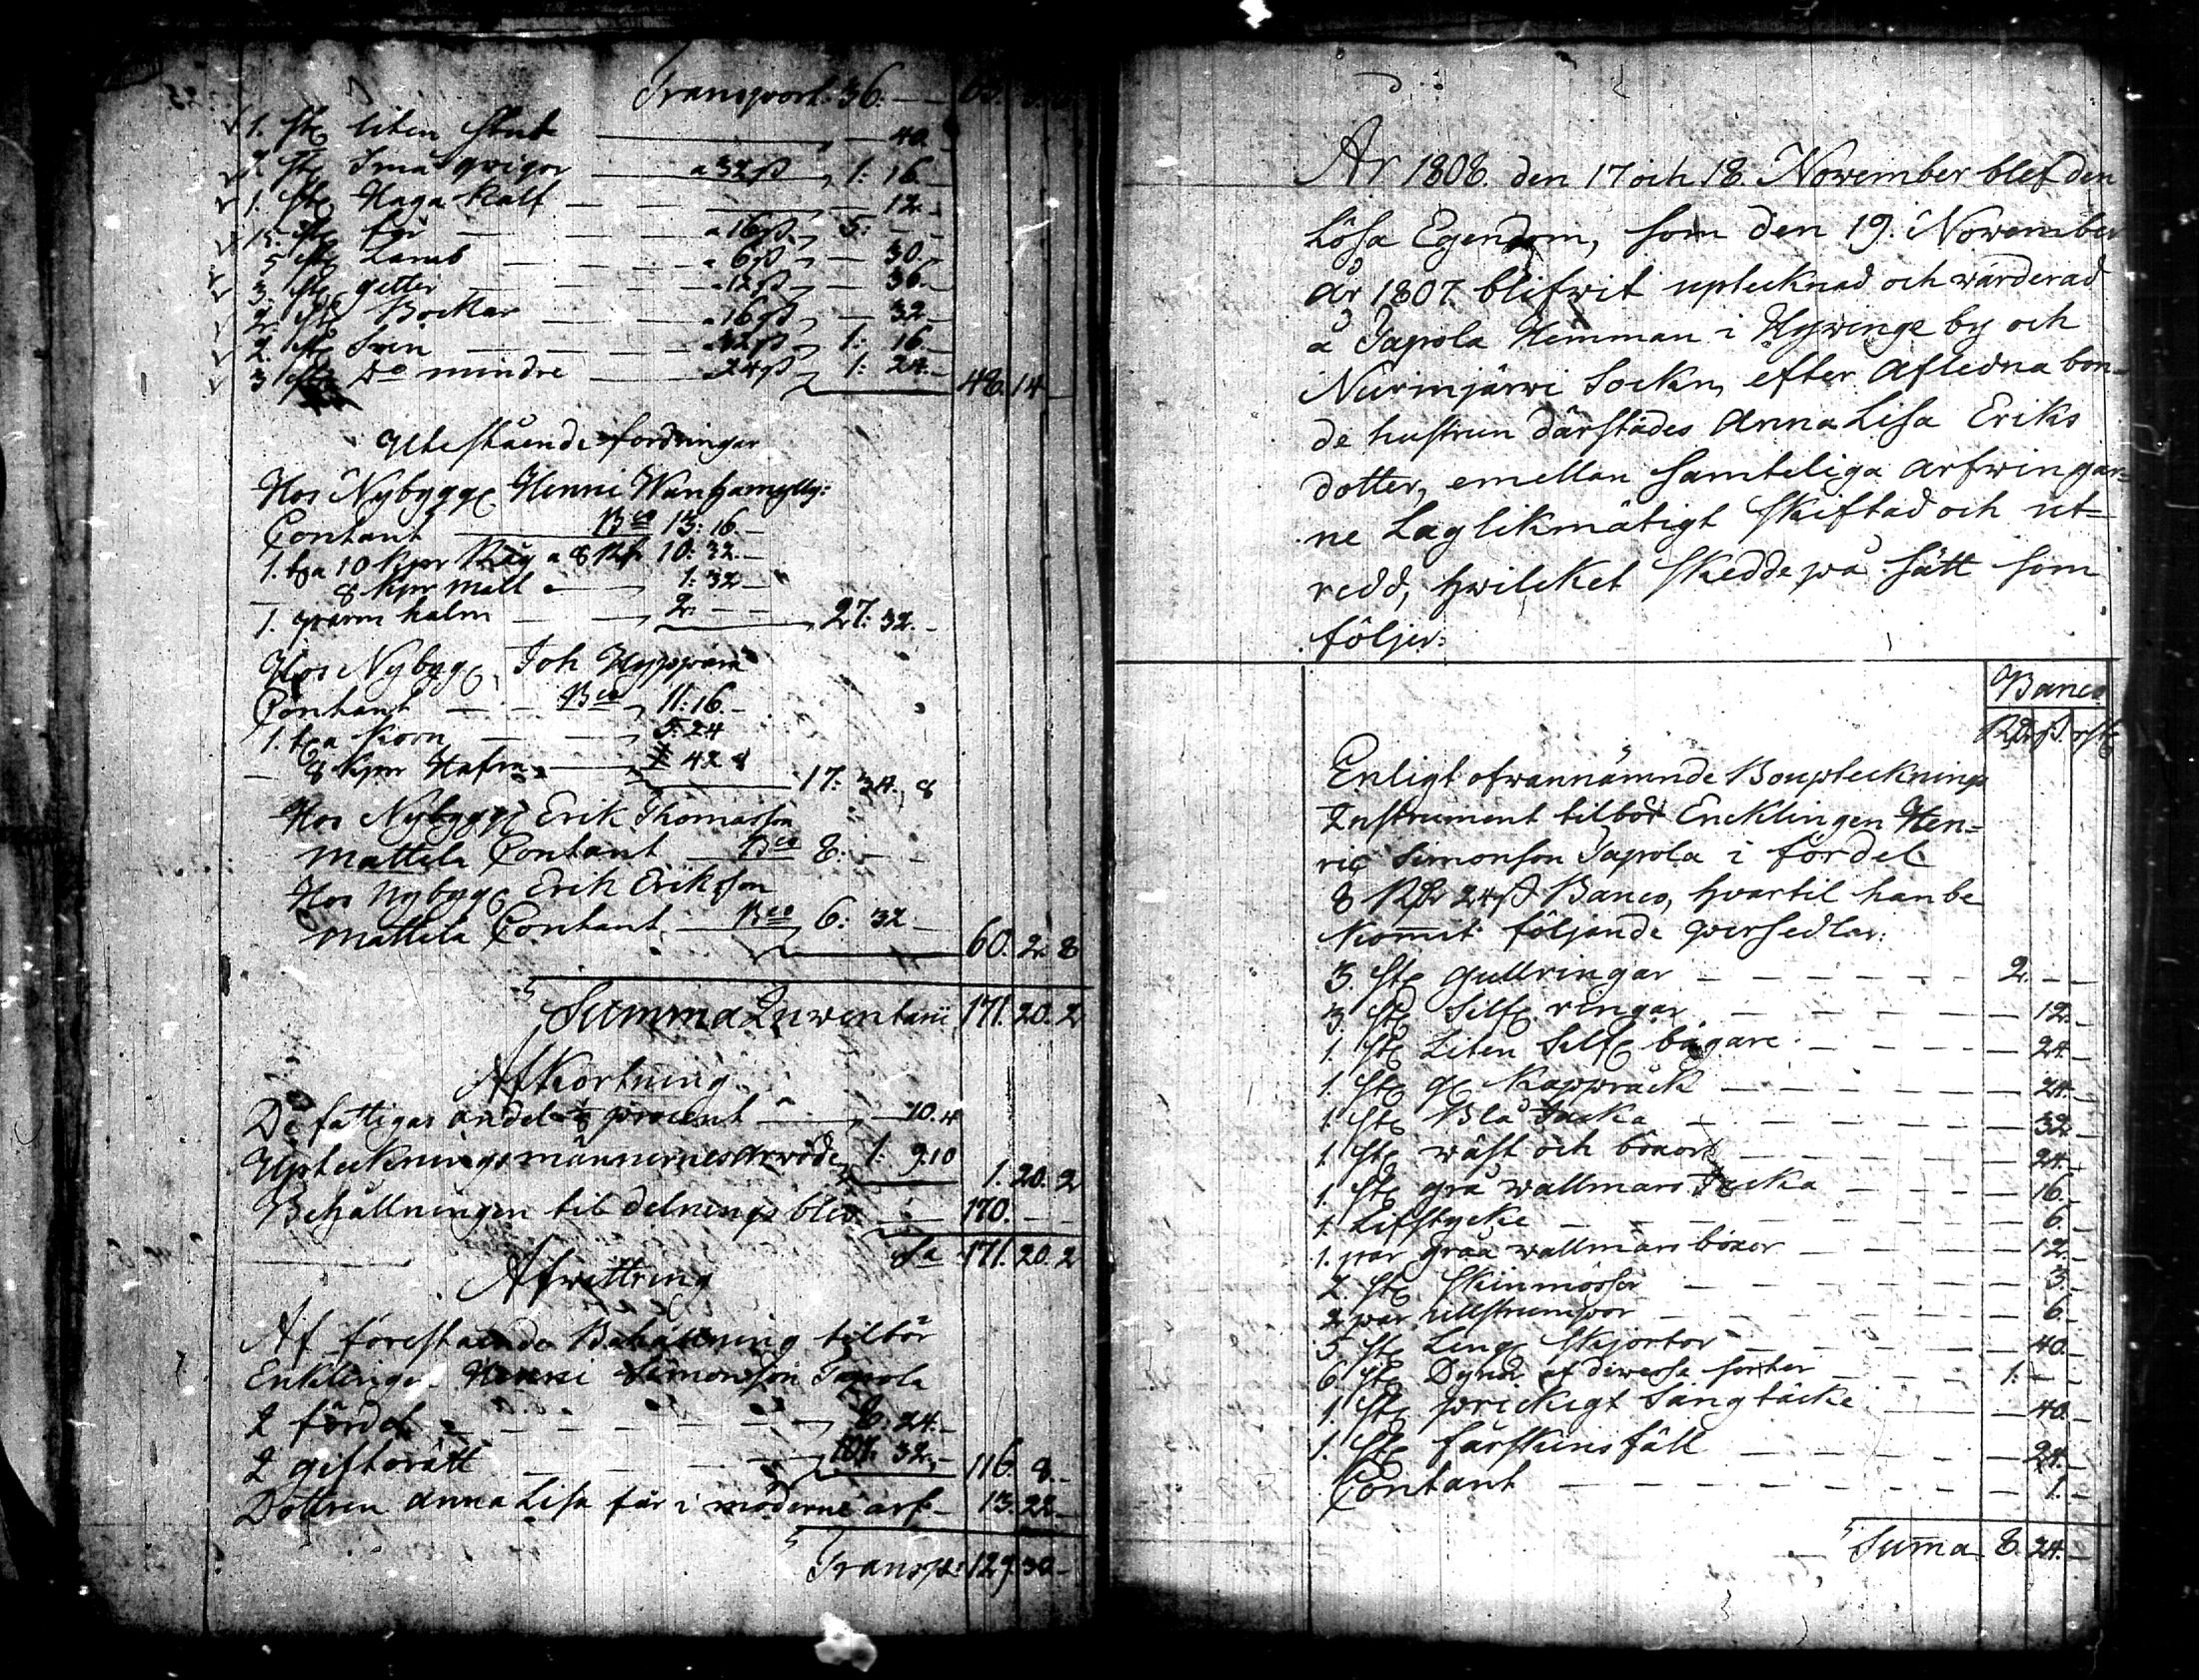 Transport. 36. — —
1. st. liten stut — 40. -
2. st. Små qvigor a 32 ß 1: 16. -
1. st. Haga kalf — 12. -
15. st. får — a 16 ß. 5: - -
5 st. Lamb — a 6 ß — 30. -
3. st. getter — a 12 ß — 36. -
2. st. Bockar — a 16 ß — 32 -
2. st. Svin — a 32 ß 1: 16. -
3 st. Do mindre — a 24 ß 1: 24. - 48. 14 -
Utestående fordringar
Hos Nybygg. Henric Wanhamylly:
Contant — Bco 13: 16. -
1. t:a 10 kpr Råg a 8 Rd 10: 32. -
8 kpr malt — 1: 32 -
1. parm halm — 2. - - 27: 32. -
Hos Nybygg. Joh Hyppärä
Contant — Bco 11: 16. -
1. t:a Korn — 5: 24
8 kpr Hafra — 42 8 17: 34. 8
Hos Nybygg. Erik Thomasson
Mattela Contant — Bco 8. - -
Hos Nybygg. Erik Eriksson
Mattela Contant — Bco 6: 32 - 60. 2. 8
Summa Inventarii 171. 20. 2
Afkortning
De fattigas andel 1/8 procent — 10. 4
Upteckningsmännernes arwode 1: 9. 10 1. 20. 2
Behållningen til delnings blir — 170. - -
Sa 171. 20. 2
Afwittring
Af förestående Behållning tilbör
Enklingen Henric Simonsson Tapola
I fördel — 8: 24. -
I giftorätt — 107. 32. - 116. 8. -
Dottren Anna Lisa får i möderne arf - 13. 22 -
Transp: 129. 30 -
År 1808. den 17 och 18. November blef den
Lösa Egendom, som den 19. November
år 1807. blifwit uptecknad och wärderad
å Tapola Hemman i Hywinge by och
Nurmjärwi Sockn, efter Afledna bon-
de hustrun därstädes Anna Lisa Eriks
dotter, emellan samteliga arfwingar=
ne Laglikmätigt skiftad och ut=
redd, hwilcket skedde på sätt som
följer:
Banco
Rdr ß rst
Enligt ofwannämnde Boupptecknings
Instrument tilbör Encklingen Hen=
ric Simonson Tapola i fördel
8 Rdr 24 ß Banco, hvartil han be
kommit följande persedlar:
3. st. gullringar — 2. - -
3. st. Silf. ringar — 12. -
1. st. Liten Silf. bägare — 24. -
1. st. g. Kappråck — 24. -
1 st. Blå Jacka — 32 -
1. st. wäst och böxor — 24. -
1. st. grå wallmars Jacka — 16. -
1. Lifstycke — 6. -
1. par gråa wallmars böxor — 12. -
2. st. skinmössor — 3. -
2 par ullstrumpor — 6. -
5 st. Ling. skjortor — 40. -
6 st. Dynor af diverse sorter — 1. - -
1. st. prickigt Sängtäcke — 40. -
1. st. fårskinsfäll — 24. -
Contant — 1. -
Suma 8. 24. -